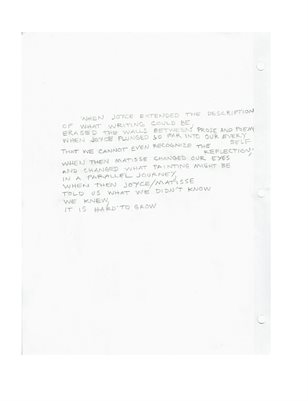 WHEN JOYCE EXTENDED THE DESCRIPTION
OF WHAT WRITING COULD BE,
ERASED THE WALLS BETWEEN PROSE AND POEM,
WHEN JOYCE PLUNGED SO FAR INTO OUR EVERY SELF
THAT WE CANNOT EVEN RECOGNIZE THE REFLECTION.
WHEN THEN MATISSE CHANGED OUR EYES
AND CHANGED WHAT PAINTING MIGHT BE
IN A PARALLEL JOURNEY,
WHEN THEN JOYCE/MATISSE
TOLD US WHAT WE DIDN'T KNOW
WE KNEW,
IT IS HARD TO GROW